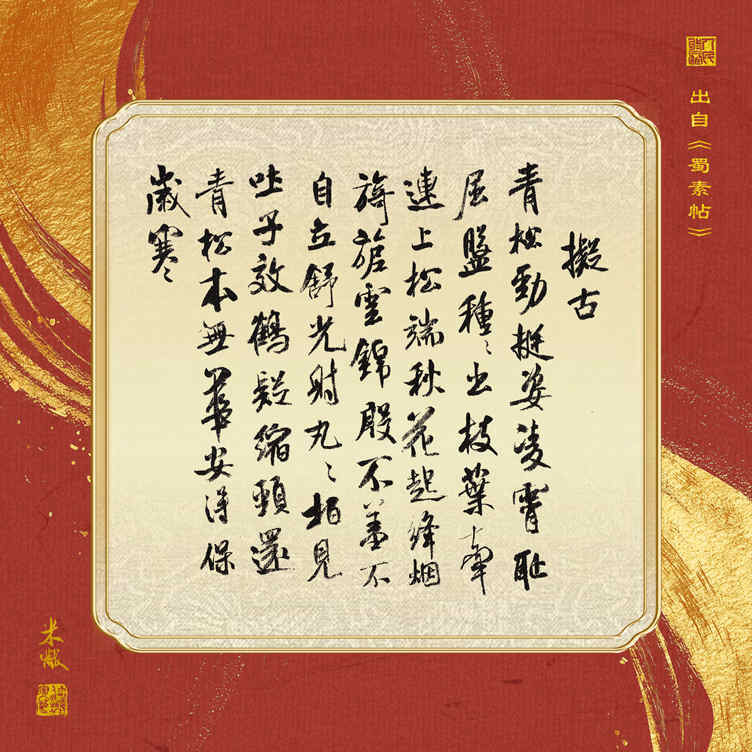 出自《蜀素帖》
擬古
青松勁挺姿凌霄耻
屈盤種〻出枝葉牽
連上松端秋花起絳烟
旖旎雲錦殷不羞不
自立舒光射丸〻柏見
吐子效鶴疑縮頸還
青松本無華安得保
歲寒
米黻